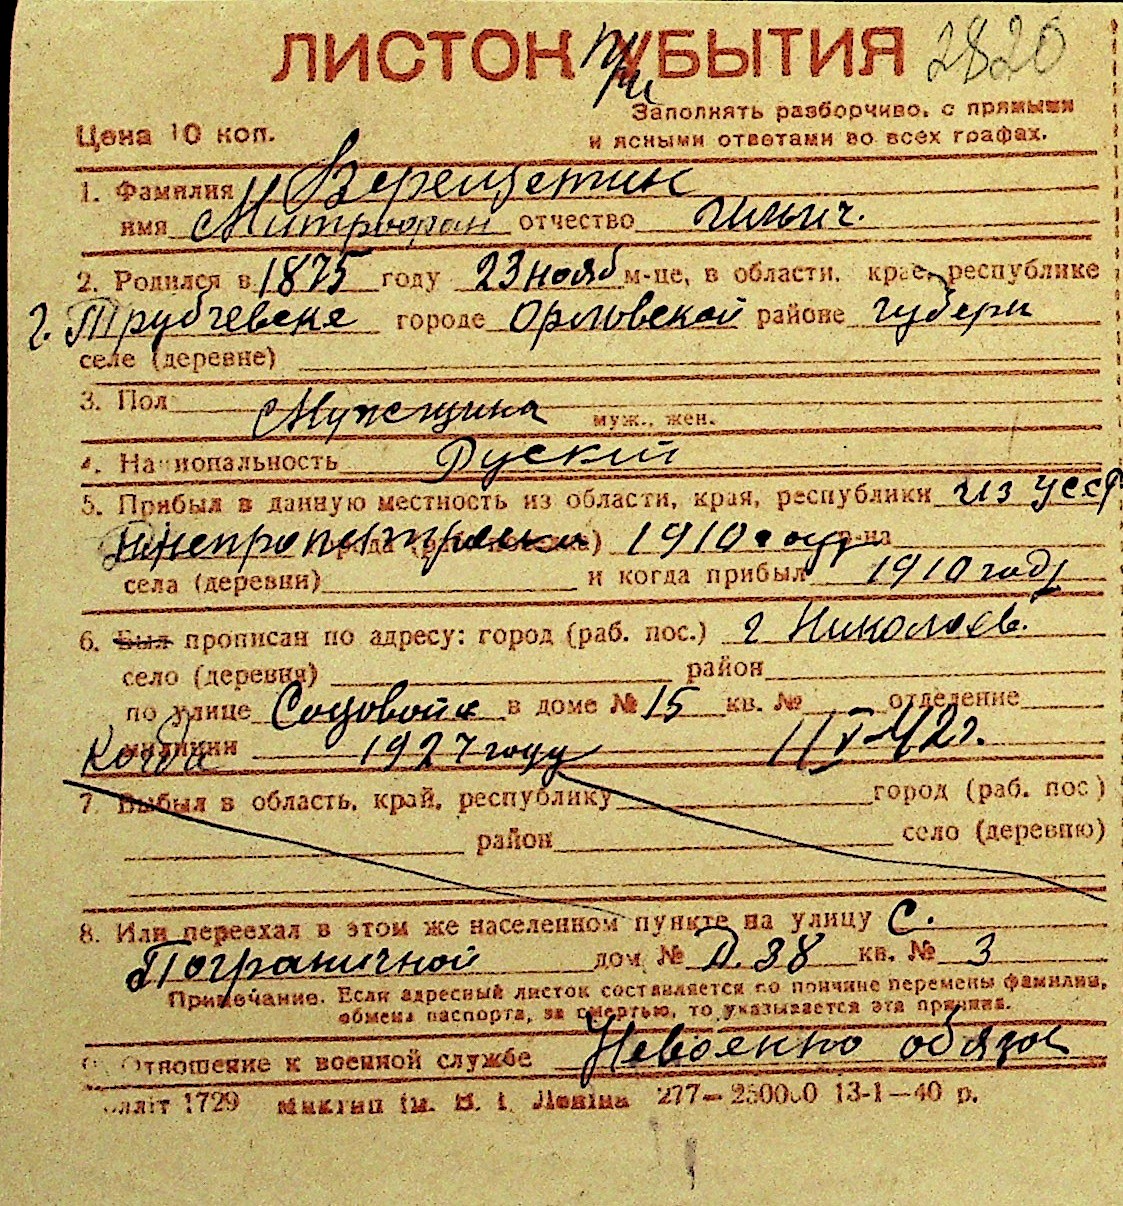 ЛИСТОК УБЫТИЯ 2820
при
Заполнять разборчиво, с прямыми
Цена 10 коп. и ясными ответами во всех графах.
1. Фамилия Верещетин
имя Митрофан отчество Ильич.
2. Родился в 1875 году 23 нояб м-це, в области, крае, республике
г. Трубчевске городе Орловской районе губерн
селе (деревне)
3. Пол Мужещина муж., жен.
4. Национальность Руский
5. Прибыл в данную местность из области, края, республики из УССР
Днепропетровска 1910 году р-на
села (деревни) и когда прибыл 1910 году
6. Был прописан по адресу: город (раб. пос.) г Николаев.
село (деревня) район
по улице Садовой в доме № 15 кв. № отделение
милиции Когда 1927 году 11/V-42 г.
7. Выбыл в область, край, республику город (раб. пос)
район село (деревню)
8. Или переехал в этом же населенном пункте на улицу С.
Пограничной дом № Д. 38 кв. № 3
Примечание. Если адресный листок составляется по причине перемены фамилии,
обмена паспорта, за смертью, то указывается эта причина.
Отношение к военной службе Невоенно обязан
1729 ім. В. І. Леніна 277— 250000 13-1—40 р.